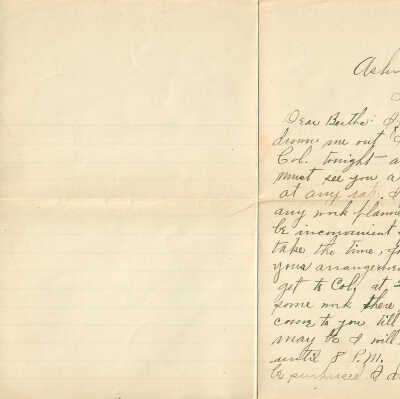 Ash
Dear Bertha: I
drown me out
Col. tonight a
must see you a
at any rate. I
any work planne
be inconvenient
take the time, fo
your arrangeme
get to Col. at 2
some work there
come to you till
may be I will
until 8 P.M.
be surprised I d